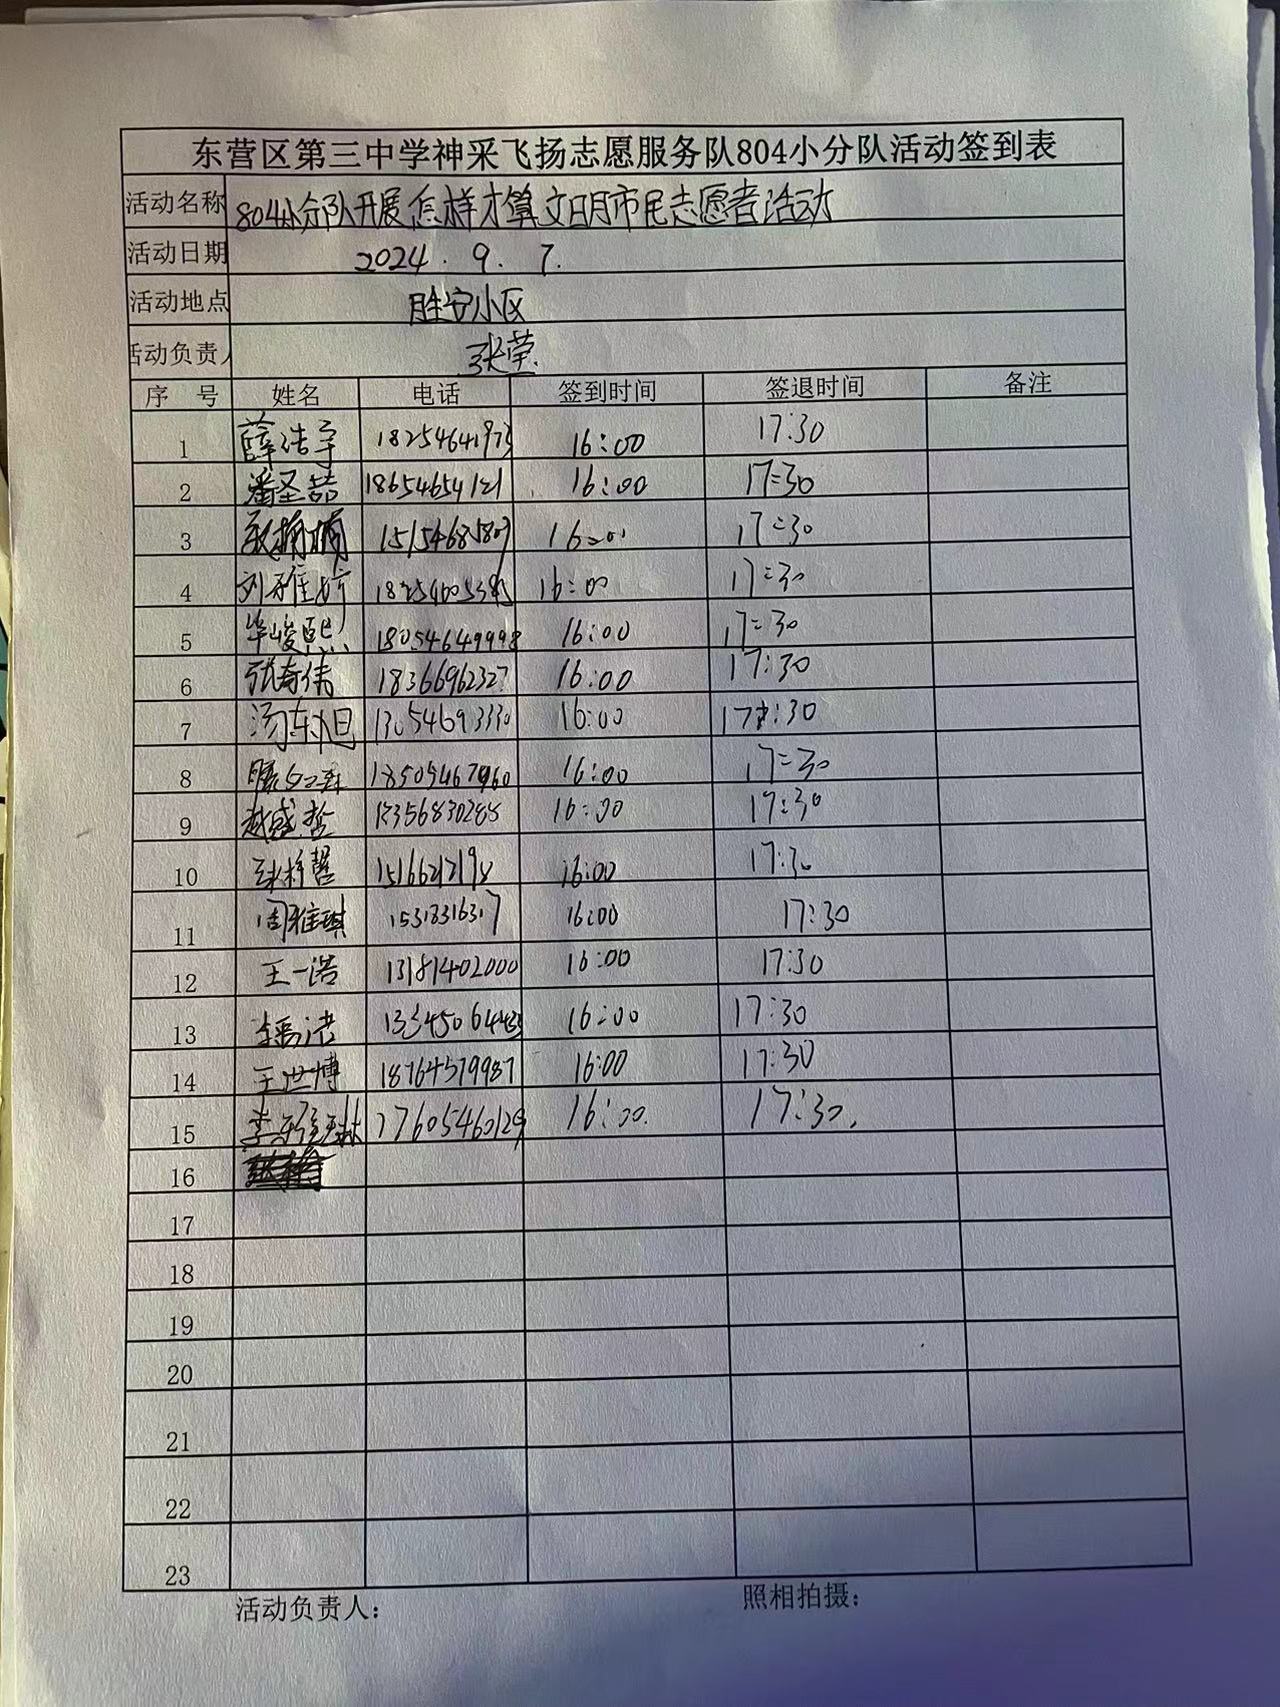 东营区第三中学神采飞扬志愿服务队804小分队活动签到表
活动名称 804小分队开展怎样才算文明市民志愿者活动
活动日期 2024.9.7.
活动地点 胜安小区
活动负责人 张莹.
序 号 姓名 电话 签到时间 签退时间 备注
1 薛浩宇 18254641973 16:00 17:30
2 潘圣喆 18654654121 16:00 17:30
3 15154685809 16:00 17:30
4 刘雅婷 16:00 17:30
5 毕峻熙 18054649998 16:00 17:30
6 张奇伟 18366962327 16:00 17:30
7 汤东旭 13054693330 16:00 17:30
8 16:00 17:30
9 赵盛哲 16:00 17:30
10 16:00 17:30
11 周雅琪 16:00 17:30
12 王一浩 13181402000 16:00 17:30
13 16:00 17:30
14 王世博 18764579987 16:00 17:30
15 17605460129 16:00. 17:30.
16
17
18
19
20
21
22
23
活动负责人： 照相拍摄：